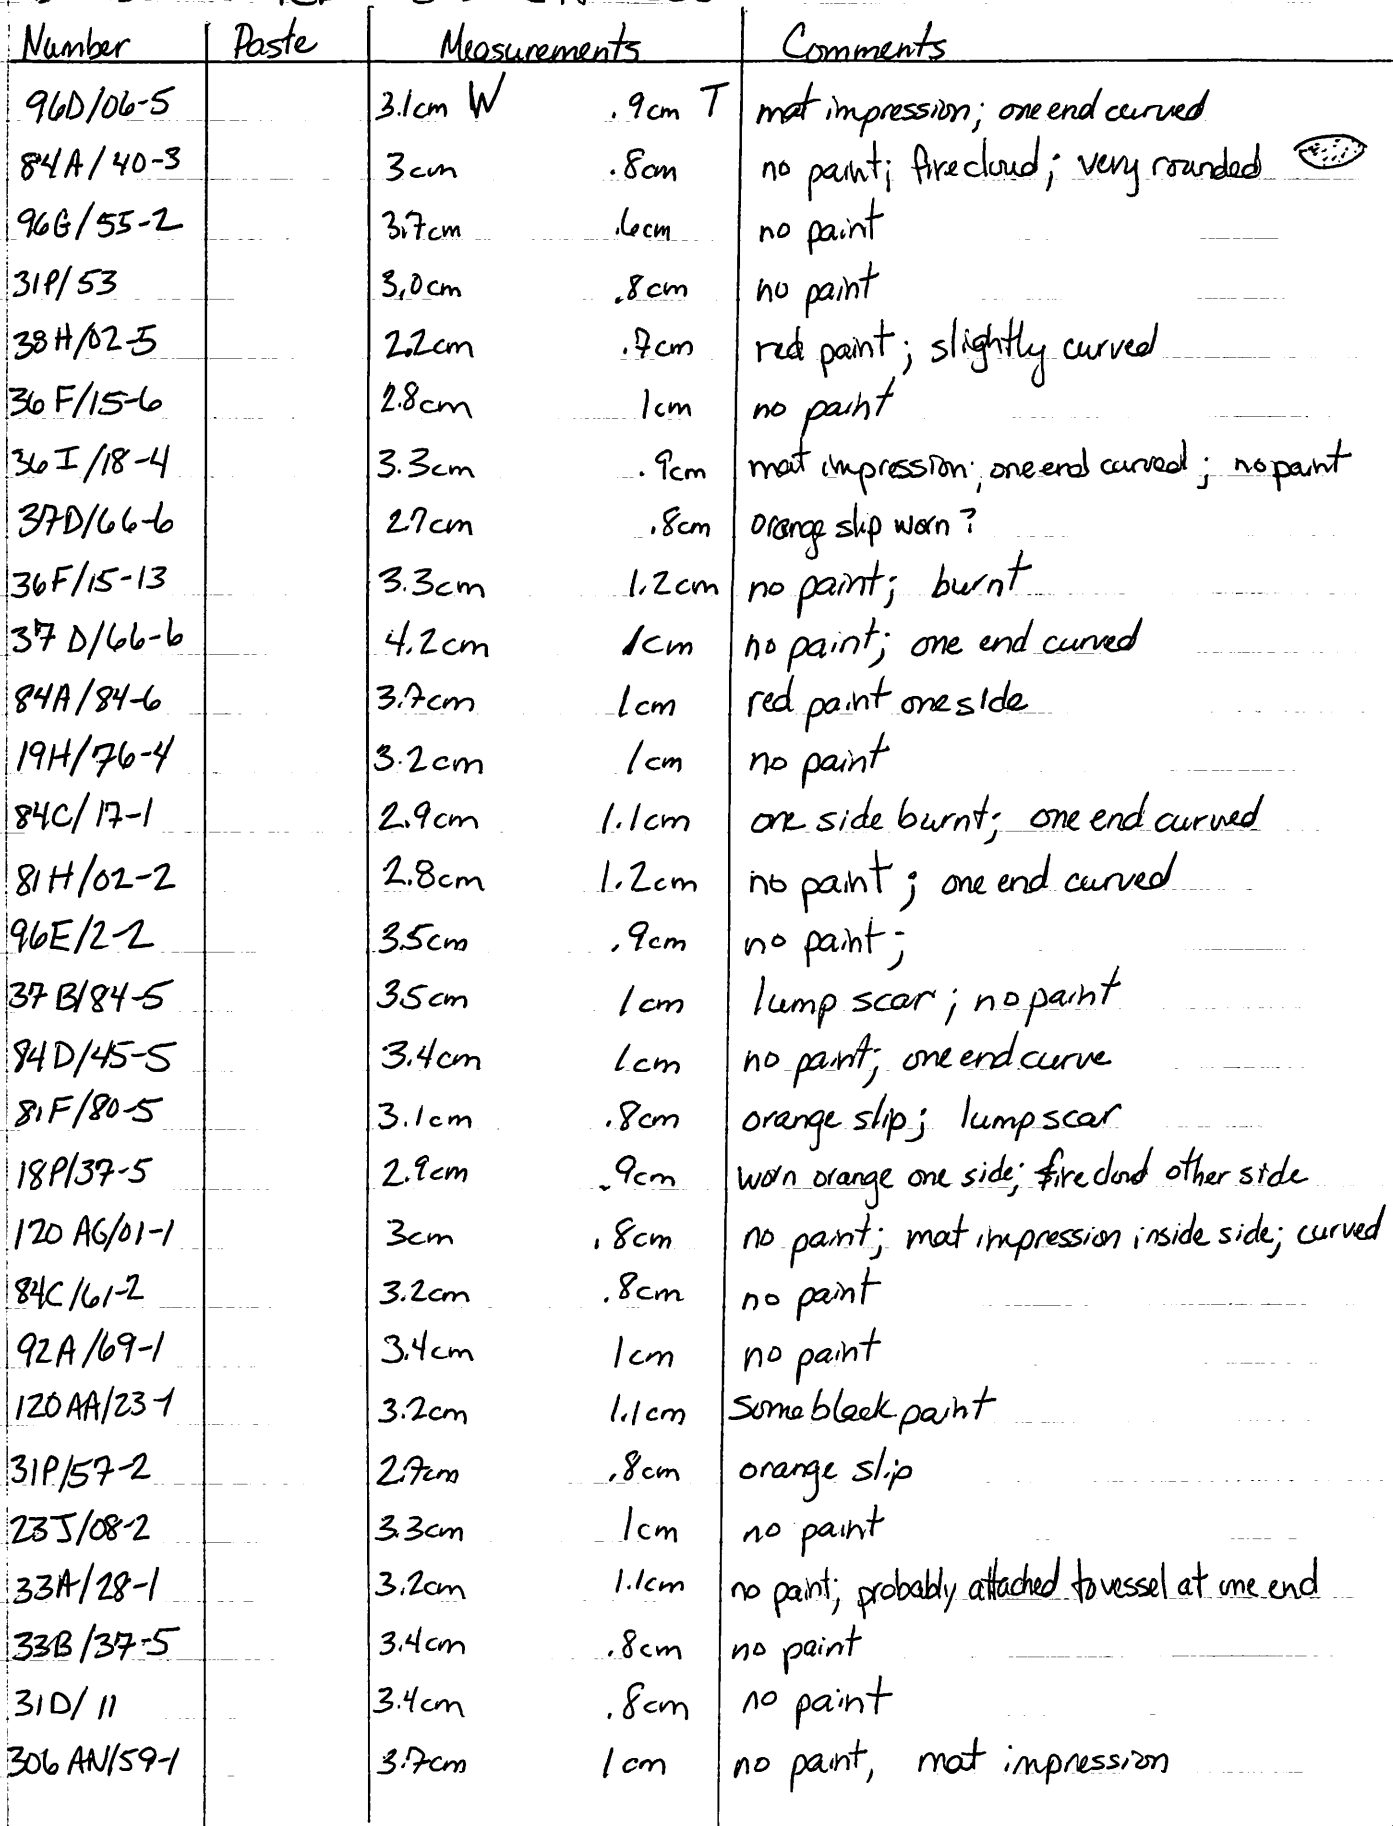 Number Paste Measurements Comments
96D/06-5 3.1cm W .9cm T mat impression; one end curved
84A/40-3 3cm .8cm no paint; firecloud; very rounded
96G/55-2 3.7cm .6cm no paint
31P/53 3.0cm .8cm no paint
38H/02-5 2.2cm .7cm red paint; slightly curved
36F/15-6 2.8cm 1cm no paint
36I/18-4 3.3cm .9cm mat impression; one end curved; no paint
37D/66-6 2.7cm .8cm orange slip worn?
36F/15-13 3.3cm 1.2cm no paint; burnt
37D/66-6 4.2cm 1cm no paint; one end curved
84A/84-6 3.7cm 1cm red paint one side
19H/76-4 3.2cm 1cm no paint
84C/17-1 2.9cm 1.1cm one side burnt; one end curved
81H/02-2 2.8cm 1.2cm no paint; one end curved
96E/2-2 3.5cm .9cm no paint;
37B/84-5 3.5cm 1cm lump scar; no paint
84D/45-5 3.4cm 1cm no paint; one end curve
81F/80-5 3.1cm .8cm orange slip; lump scar
18P/37-5 2.9cm .9cm worn orange one side; firecloud other side
120AG/01-1 3cm .8cm no paint; mat impression inside side; curved
84C/61-2 3.2cm .8cm no paint
92A/69-1 3.4cm 1cm no paint
120AA/23-1 3.2cm 1.1cm some black paint
31P/57-2 2.7cm .8cm orange slip
23J/08-2 3.3cm 1cm no paint
33A/28-1 3.2cm 1.1cm no paint; probably attached to vessel at one end
33B/37-5 3.4cm .8cm no paint
31D/11 3.4cm .8cm no paint
306AN/59-1 3.7cm 1cm no paint, mat impression